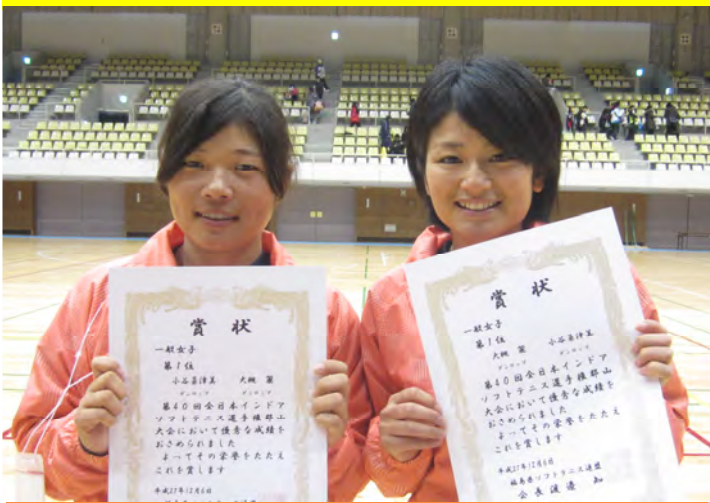 賞状
一般女子
第1位
小谷菜津美 大槻 麗
ダンロップ ダンロップ
第40回全日本インドア
ソフトテニス選手権郡山
大会において優秀な成績を
おさめられました
よってその栄誉をたたえ
これを賞します
平成27年12月6日
賞状
一般女子
第1位
大槻 麗 小谷菜津美
ダンロップ ダンロップ
第40回全日本インドア
ソフトテニス選手権郡山
大会において優秀な成績を
おさめられました
よってその栄誉をたたえ
これを賞します
平成27年12月6日
福島県ソフトテニス連盟
会長 渡邉